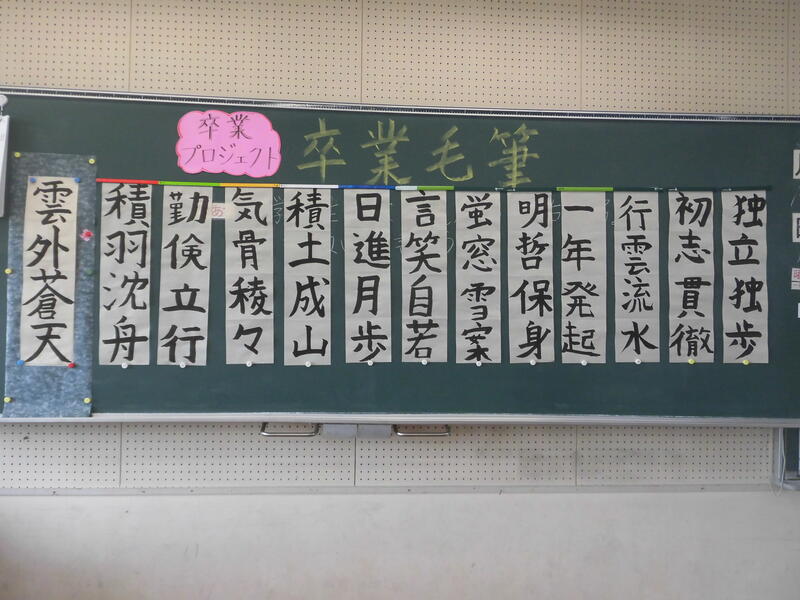 卒業
プロジェクト
卒業毛筆
独立独歩
初志貫徹
行雲流水
一年発起
明哲保身
蛍窓雪案
言笑自若
日進月歩
積土成山
気骨稜々
勤倹立行
積羽沈舟
雲外蒼天